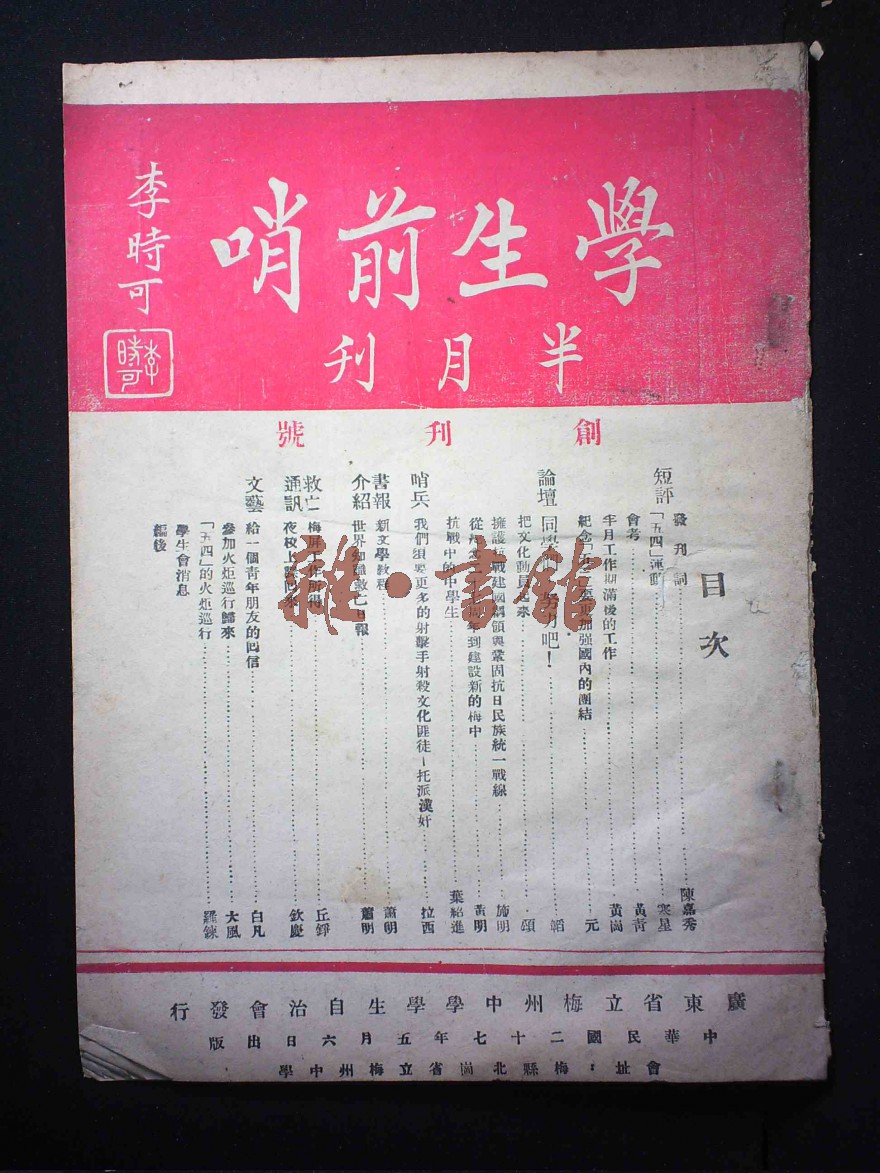 學生前哨
半月刊
李時可
李時可
創刊號
目次
發刊詞 陳嘉秀
短評
「五四」運動 寒星
會考 黃青
半月工作期滿後的工作 黃崗
紀念「五 要更加强國內的團結 元
論壇
同學們 努力吧! 韜
把文化動員 來 頌
擁護抗戰建國綱領與鞏固抗日民族統一戰線 施明
從 年到建設新的梅中 黃明
抗戰中的中學生 葉紹進
哨兵
我們須要更多的射擊手射殺文化匪徒—托派漢奸 拉西
書報介紹
新文學教程 蕭朝
世界知識 救亡日報 蕭明
救亡通訊
梅屏工作所得 丘錚
夜校上課回來 欽慶
文藝
給一個青年朋友的回信 白凡
參加火炬巡行歸來 大風
「五四」的火炬巡行 羅鍊
學生會消息
編後
廣東省立梅州中學學生自治會發行
中華民國二十七年五月六日出版
會址:梅縣北崗省立梅州中學
雜·書館